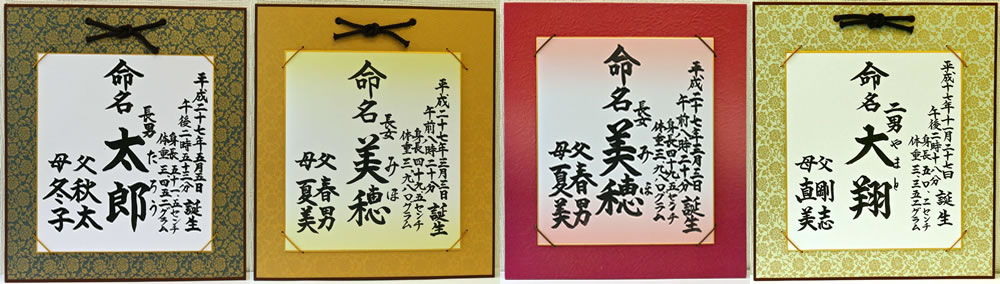 平成二十七年五月五日 誕生
午後二時五十三分
身長 五十一・五センチ
体重 三、四五二グラム
命名
長男 太郎
たろう
父 秋太
母 冬子
平成二十七年三月三日 誕生
午前八時二十分
身長 四十九・五センチ
体重 グラム
命名
長女 美穂
みほ
父 春男
母 夏美
平成二十七年三月三日 誕生
午前八時二十分
身長 四十九・五センチ
体重 グラム
命名
長女 美穂
みほ
父 春男
母 夏美
平成十七年十一月二十七日 誕生
午後二時十八分
身長 五〇・二センチ
体重 三、三五二グラム
命名
二男 大翔
やまと
父 剛志
母 直美